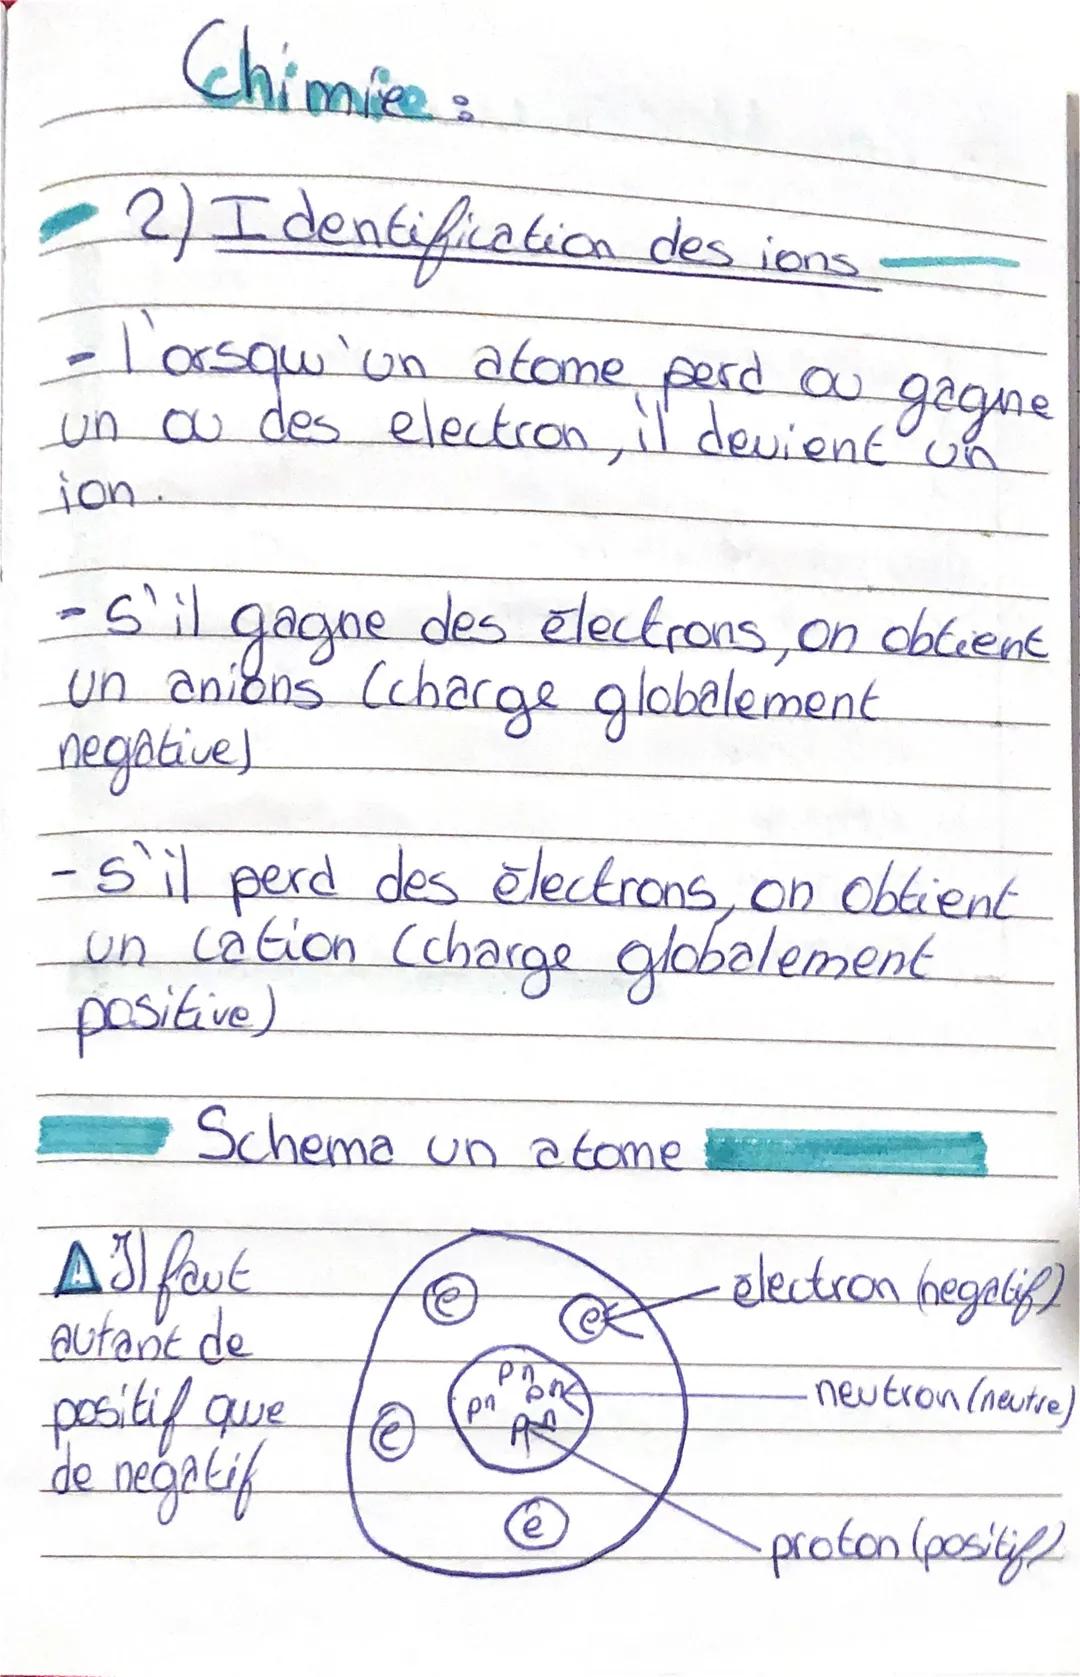 Chimie :
2) Identification des ions
- l'orsqu'un atome perd ou gagne
un ou des electron, il devient un
ion.
- s'il gagne des électrons, on obtient
un anions (charge globalement
negative)
- s'il perd des électrons, on obtient
un cation (charge globalement
positive)
Schema un atome
⚠ Il faut
autant de
positif que
de négatif
e
e
électron (negatif)
pn
pn
pn
pn
neutron (neutre)
e
e
proton (positif)